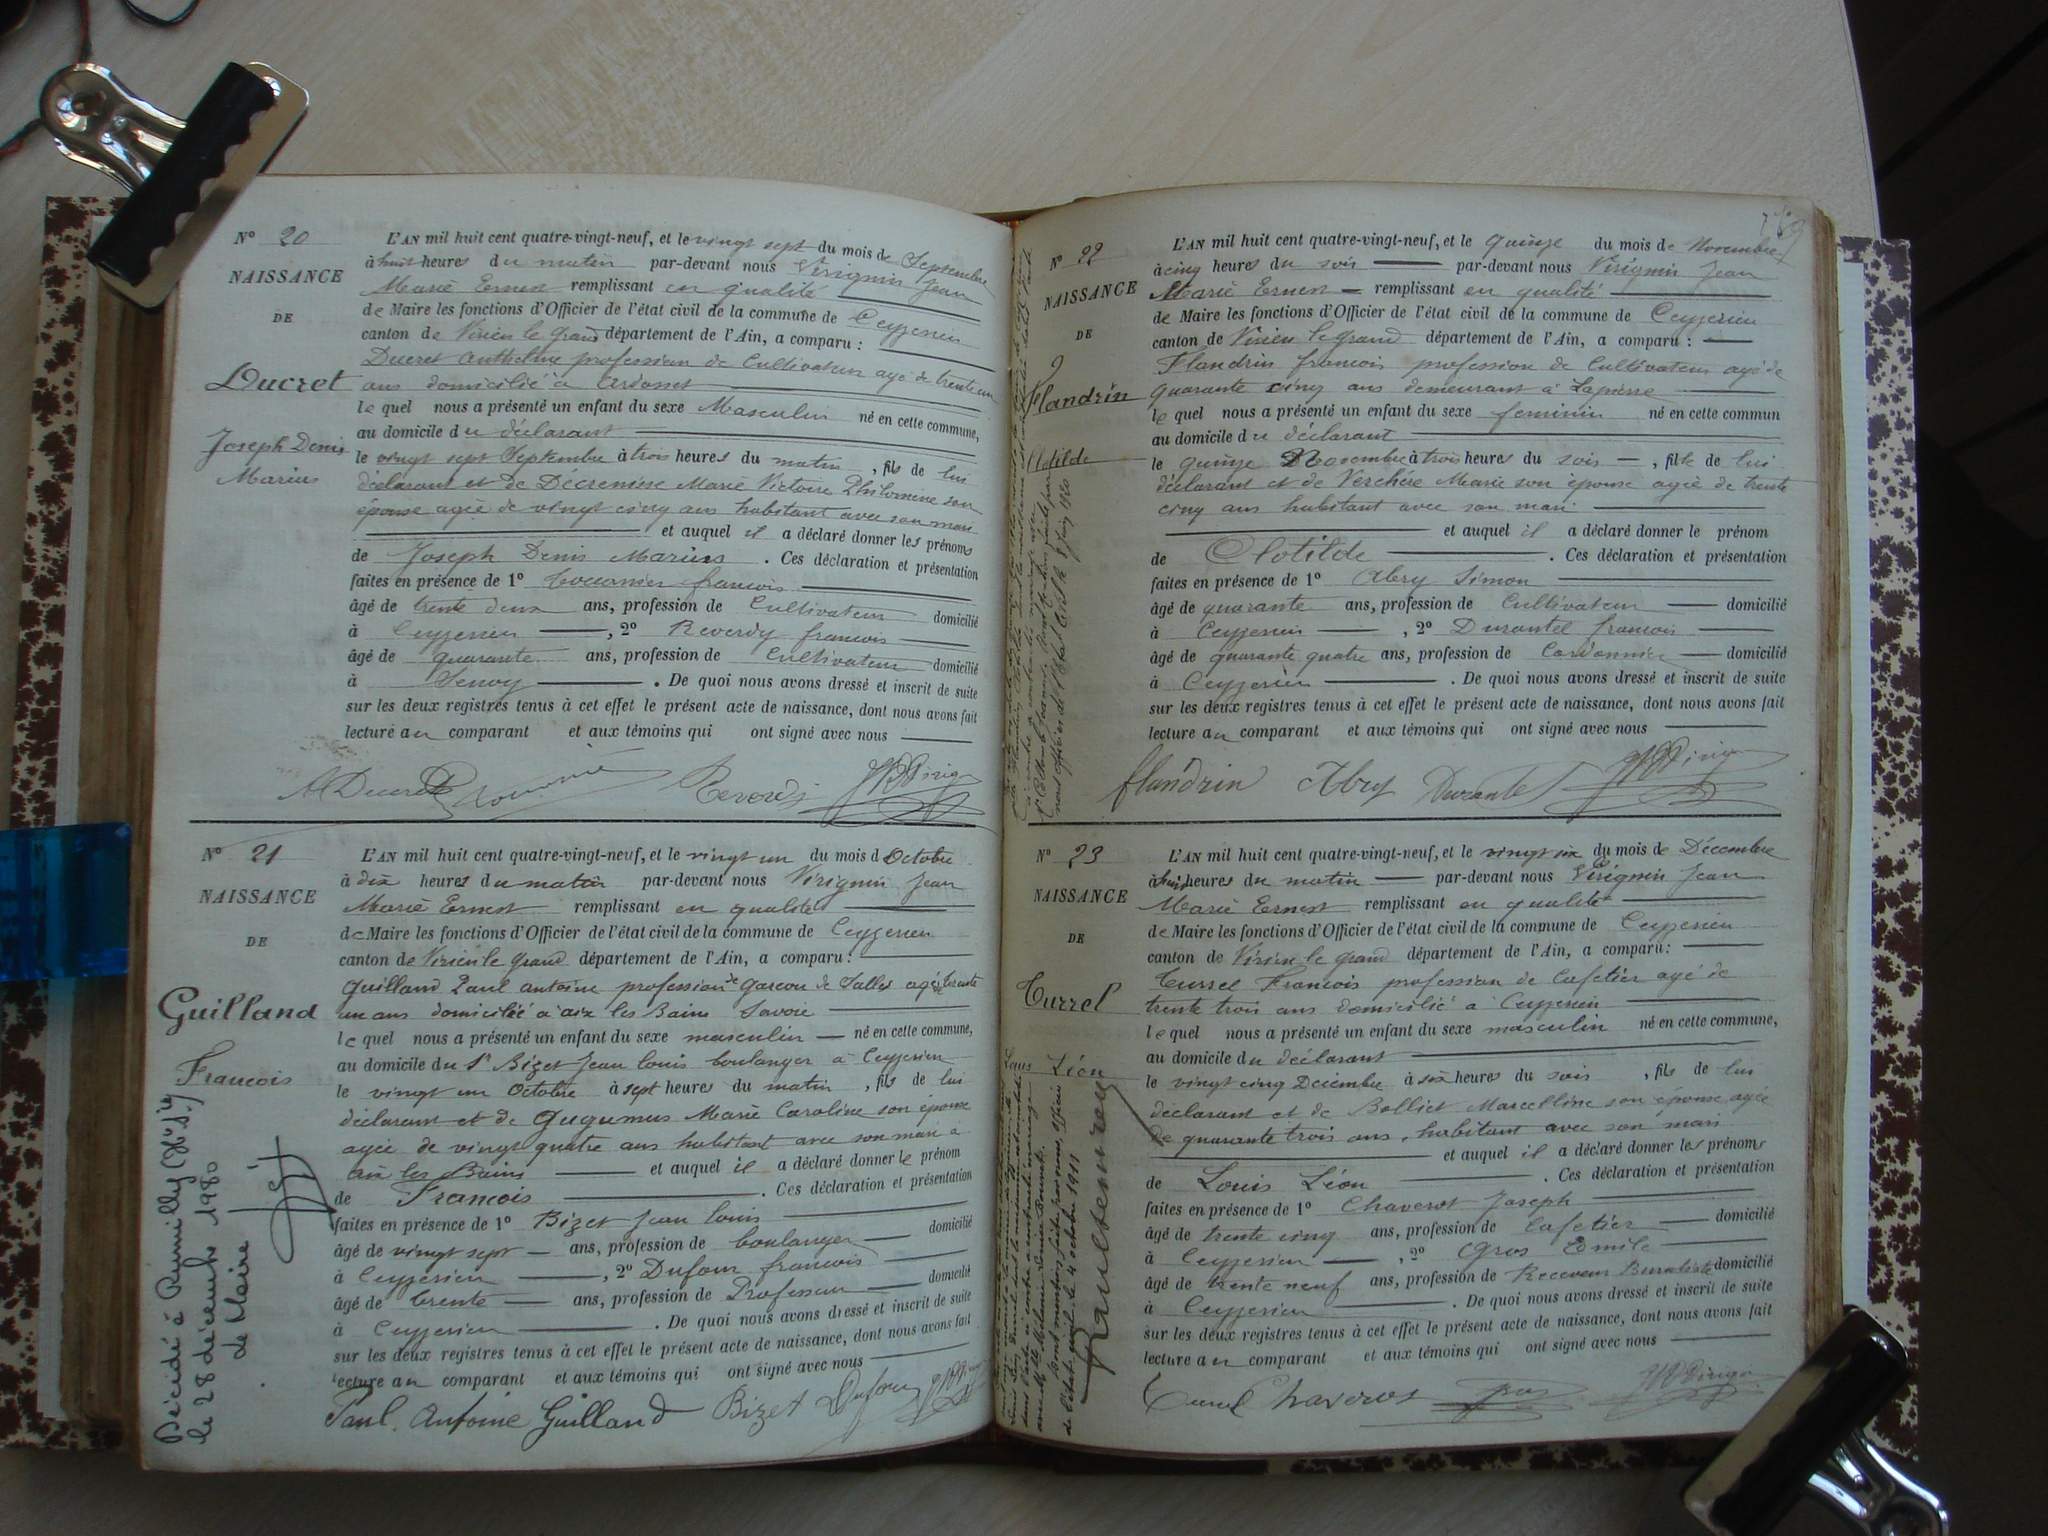 N° 20
NAISSANCE
DE
Ducret
Joseph Denis
Marius
L'AN mil huit cent quatre-vingt-neuf, et le vingt sept du mois de Septembre
à huit heures du matin par-devant nous Virignin Jean
Marie Ernest remplissant en qualité
de Maire les fonctions d'Officier de l'état civil de la commune de Ceyzerieu
canton de Virieu le Grand département de l'Ain, a comparu :
Ducret Anthelme profession de Cultivateur agé de trente un
ans domicilié à Ardosset
le quel nous a présenté un enfant du sexe Masculin né en cette commune,
au domicile du déclarant
le vingt sept Septembre à trois heures du matin , fils de lui
déclarant et de Décrenisse Marie Victoire Philomine son
épouse agée de vingt cinq ans habitant avec son mari
et auquel il a déclaré donner les prénoms
de Joseph Denis Marius . Ces déclaration et présentation
faites en présence de 1° françois
âgé de trente deux ans, profession de Cultivateur domicilié
à Ceyzerieu , 2° Reverdy francois
âgé de quarante ans, profession de Cultivateur domicilié
à Senoy . De quoi nous avons dressé et inscrit de suite
sur les deux registres tenus à cet effet le présent acte de naissance, dont nous avons fait
lecture au comparant et aux témoins qui ont signé avec nous
A Ducret Reverdy
N° 21
NAISSANCE
DE
Guilland
Francois
Décédé à Rumilly (Hte Sie)
le 28 décembre 1980
de Maire
L'AN mil huit cent quatre-vingt-neuf, et le vingt un du mois d Octobre
à dix heures du matin par-devant nous Virignin Jean
Marie Ernest remplissant en qualité
de Maire les fonctions d'Officier de l'état civil de la commune de Ceyzerieu
canton de Virieu le grand département de l'Ain, a comparu :
Guilland Paul Antoine profession de garcon de Salles agé de trente
un ans domicilié à aix les Bains Savoie
le quel nous a présenté un enfant du sexe masculin né en cette commune,
au domicile du Sr Bizet Jean louis boulanger à Ceyzerieu
le vingt un Octobre à sept heures du matin , fils de lui
déclarant et de Gugumus Marie Caroline son épouse
agée de vingt quatre ans habitant avec son mari à
aix les Bains et auquel il a déclaré donner le prénom
de Francois . Ces déclaration et présentation
faites en présence de 1° Bizet Jean louis
âgé de vingt sept ans, profession de boulanger domicilié
à Ceyzerieu , 2° Dufour francois
âgé de trente ans, profession de Professeur domicilié
à Ceyzerieu . De quoi nous avons dressé et inscrit de suite
sur les deux registres tenus à cet effet le présent acte de naissance, dont nous avons fait
lecture au comparant et aux témoins qui ont signé avec nous
Paul Antoine Guilland Bizet Dufour
N° 22
NAISSANCE
DE
Flandrin
Clotilde
L'AN mil huit cent quatre-vingt-neuf, et le quinze du mois de Novembre
à cinq heures du soir par-devant nous Virignin Jean
Marie Ernest remplissant en qualité
de Maire les fonctions d'Officier de l'état civil de la commune de Ceyzerieu
canton de Virieu le grand département de l'Ain, a comparu :
Flandrin francois profession de Cultivateur agé de
quarante cinq ans demeurant à Lapierre
le quel nous a présenté un enfant du sexe feminin né en cette commun
au domicile du déclarant
le quinze Novembre à trois heures du soir , fille de lui
déclarant et de Verchére Marie son épouse agée de trente
cinq ans habitant avec son mari
et auquel il a déclaré donner le prénom
de Clotilde . Ces déclaration et présentation
faites en présence de 1° Abry Simon
âgé de quarante ans, profession de Cultivateur domicilié
à Ceyzerieu , 2° Durantel francois
âgé de quarante quatre ans, profession de Cordonnier domicilié
à Ceyzerieu . De quoi nous avons dressé et inscrit de suite
sur les deux registres tenus à cet effet le présent acte de naissance, dont nous avons fait
lecture au comparant et aux témoins qui ont signé avec nous
flandrin Abry Durantel
N° 23
NAISSANCE
DE
Turrel
Louis Léon
de l'état civil le 4 octobre 1911
L'AN mil huit cent quatre-vingt-neuf, et le vingt six du mois de Décembre
à huit heures du matin par-devant nous Virignin Jean
Marie Ernest remplissant en qualité
de Maire les fonctions d'Officier de l'état civil de la commune de Ceyzerieu
canton de Virieu le grand département de l'Ain, a comparu :
Turrel Francois profession de Cafetier agé de
trente trois ans domicilié à Ceyzerieu
le quel nous a présenté un enfant du sexe masculin né en cette commune,
au domicile du déclarant
le vingt cinq Décembre à six heures du soir , fils de lui
déclarant et de Bolliet Marcelline son épouse agée
de quarante trois ans, habitant avec son mari
et auquel il a déclaré donner les prénoms
de Louis Léon . Ces déclaration et présentation
faites en présence de 1° Chaverot Joseph
âgé de trente cinq ans, profession de Cafetier domicilié
à Ceyzerieu , 2° Gros Emile
âgé de trente neuf ans, profession de Receveur Buraliste domicilié
à Ceyzerieu . De quoi nous avons dressé et inscrit de suite
sur les deux registres tenus à cet effet le présent acte de naissance, dont nous avons fait
lecture au comparant et aux témoins qui ont signé avec nous
Turrel Chaverot Gros